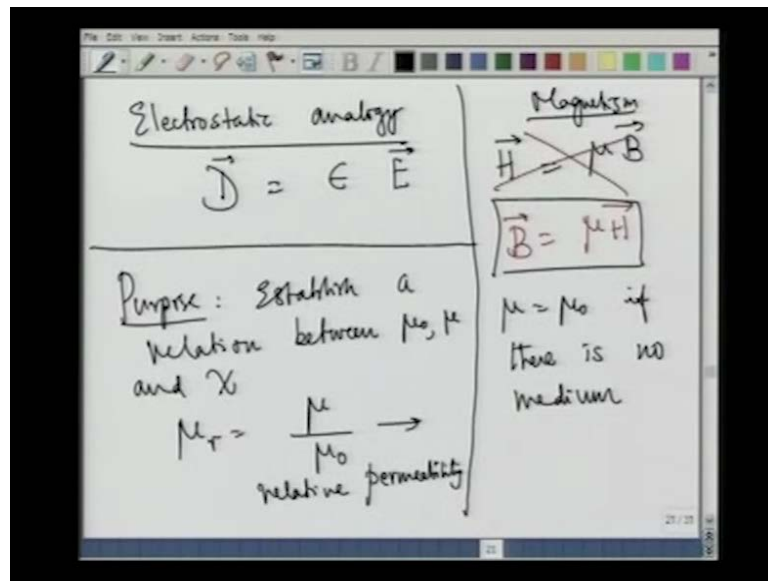 File Edit View Insert Actions Tools Help
B I
Electrostatic analogy
D⃗ = ϵ E⃗
Purpose: Establish a
relation between μ₀, μ
and χ
μᵣ = μ / μ₀ →
relative permeability
Magnetism
H⃗ = μ B⃗
B⃗ = μH⃗
μ = μ₀ if
there is no
medium
21/21
21